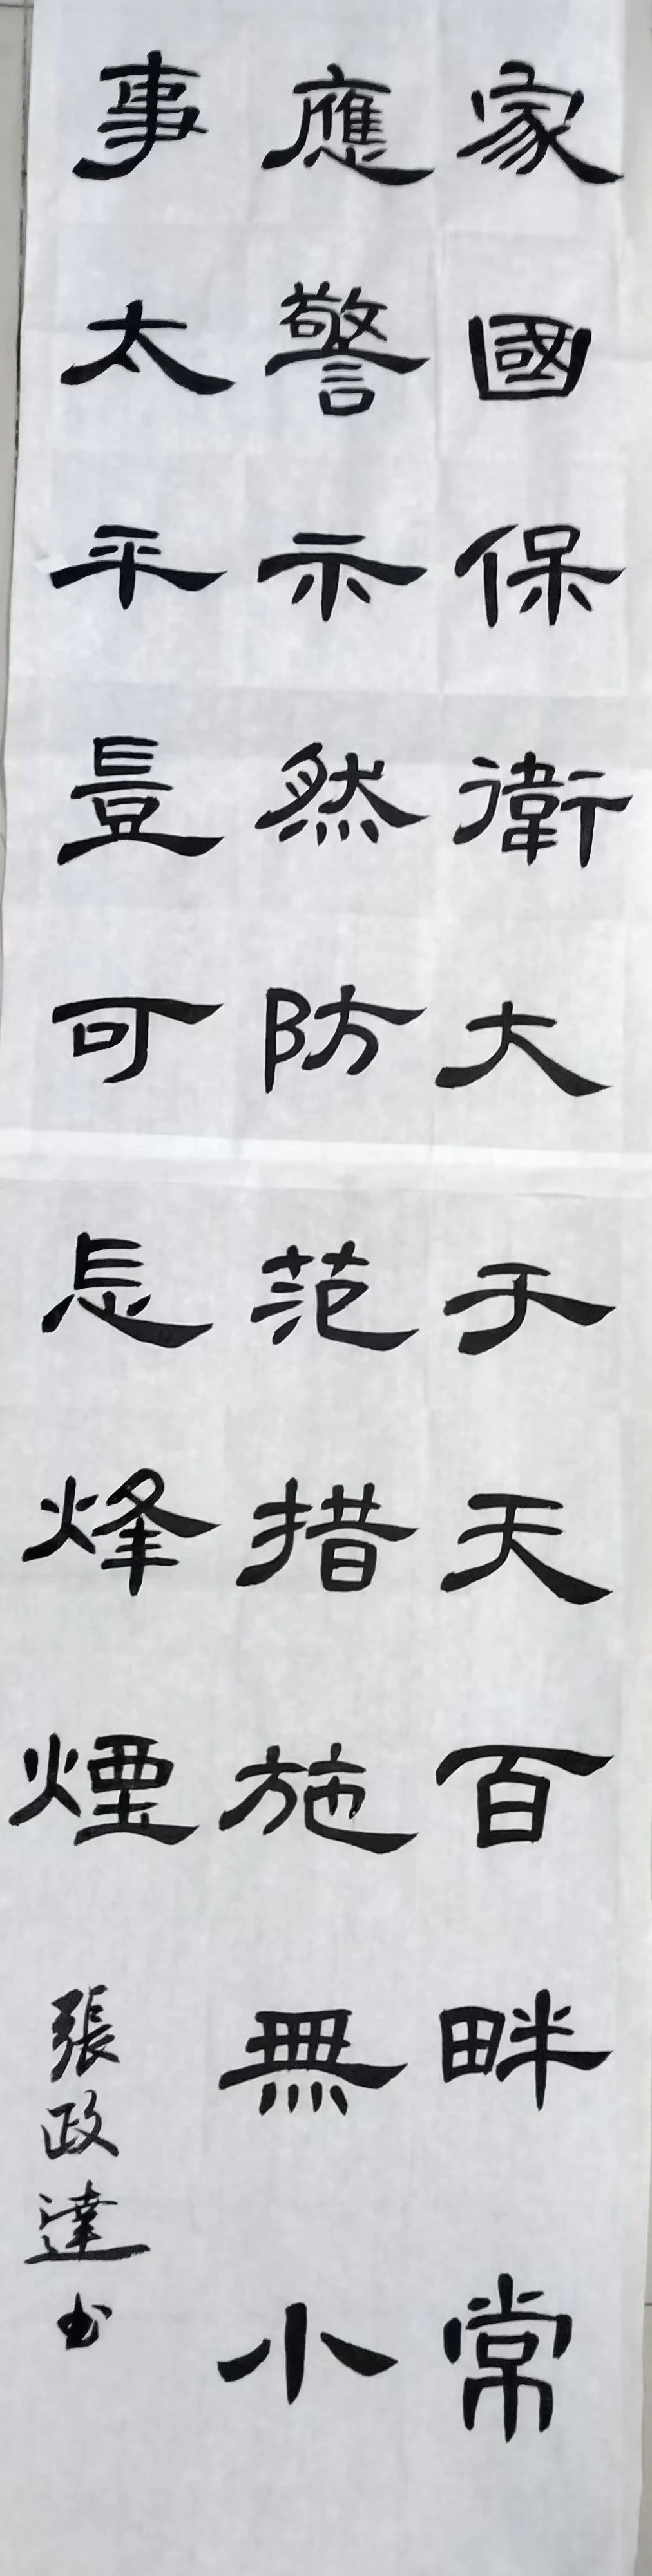 家國保衛大于天百畔常
應警示然防范措施無小
事太平豈可忘烽煙
張政達书